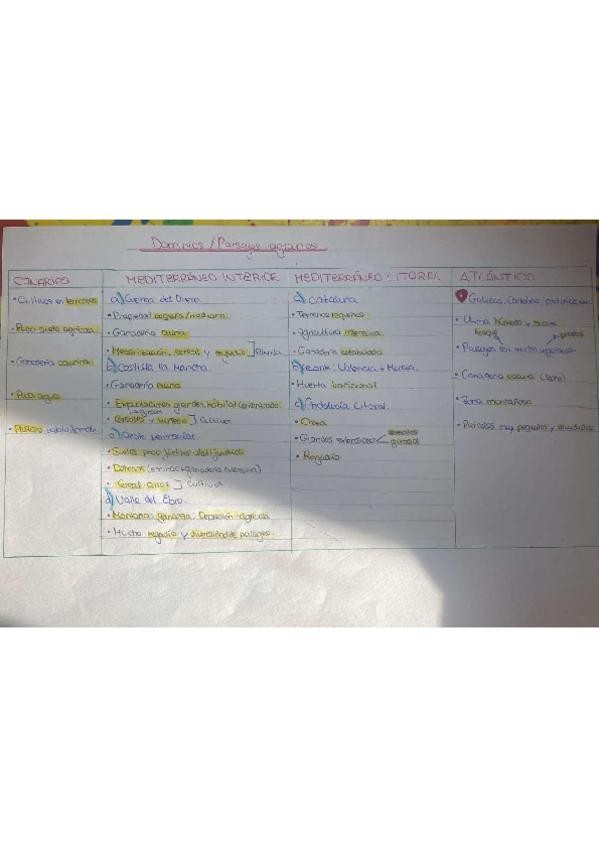 Dominios / Paisajes agrarios
CANARIAS
• Cultivos en terrazas
• Poco suelo agrícola
• Ganadería caprina
• Poca agua
• Plátano, patata, tomate
MEDITERRÁNEO INTERIOR
a) Cuenca del Duero
• Propiedad pequeña/mediana
• Ganadería ovina
• cereal y regadío
b) Castilla la Mancha
• Ganadería ovina
• Explotaciones grandes, hábitat concentrado
• Cereales y viñedo ] Cultivos
c) Oeste peninsular
• Suelos poco fértiles
• Dehesas (encinas + ganadería extensiva)
• Cereal, ] Cultivos
d) Valle del Ebro.
• Montaña: ganadera: Depresión: agrícola
• Mucho regadío y diversidad de paisajes.
MEDITERRÁNEO LITORAL
a) Cataluña
• Terrenos reganeos
• Agricultura intensiva
• Ganadería estabulada
b) Levante: Valencia + Murcia.
• Huerta tradicional
c) Andalucía Litoral.
• Costa
• Grandes extensiones cereales girasol
• Regadío
ATLÁNTICO
Galicia, Cantabria, Asturias
• Clima húmedo y suave
bosque prados
• Paisajes con mucha vegetación
• Ganadería vacuna (leche)
• Zona montañosa
• Parcelas muy pequeñas y divididas